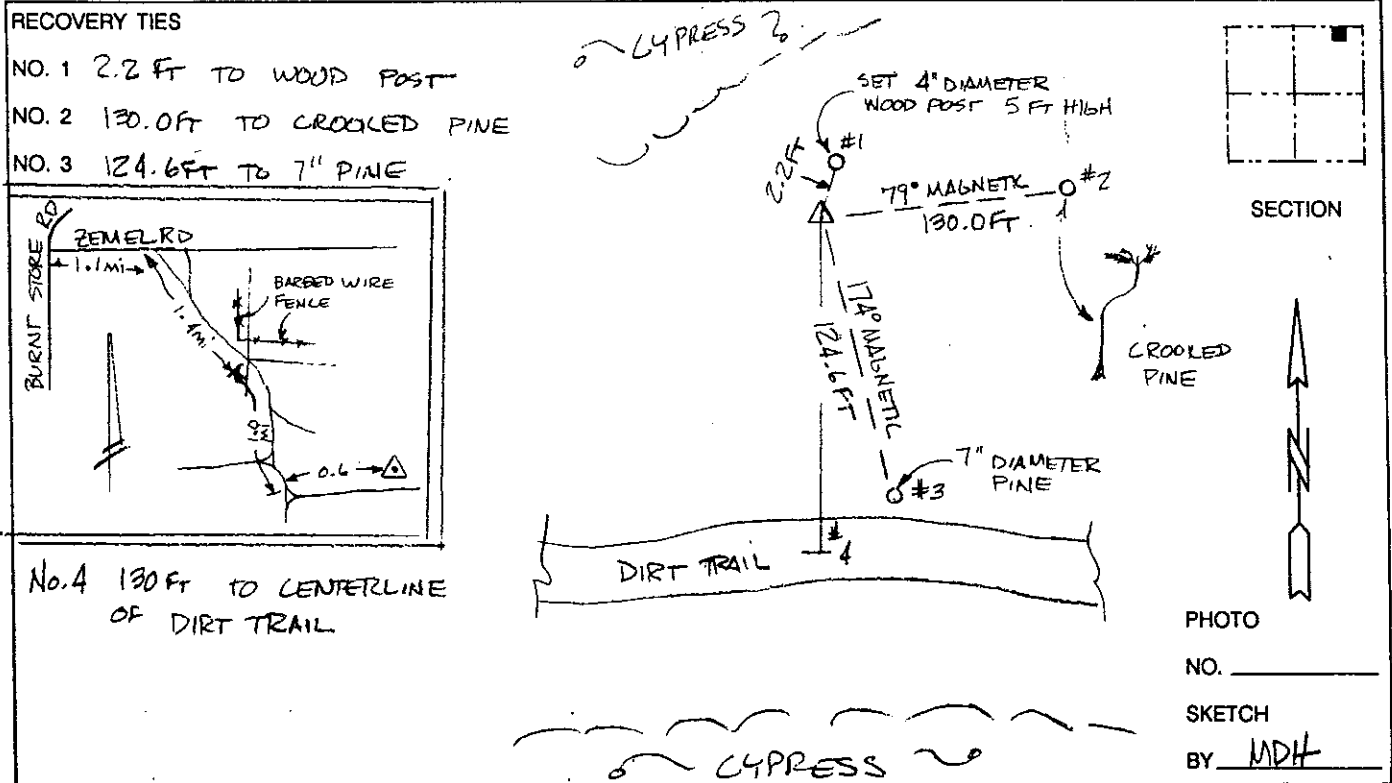 RECOVERY TIES
NO. 1 2.2 FT TO WOOD POST
NO. 2 130.0FT TO CROOKED PINE
NO. 3 124.6FT TO 7" PINE
BURNT STORE RD
ZEMEL RD
1.1Mi
1.4Mi
BARBED WIRE
FENCE
0.6
No.4 130 FT TO CENTERLINE
OF DIRT TRAIL
CYPRESS
SET 4" DIAMETER
WOOD POST 5 FT HIGH
#1
2.2FT
79° MAGNETIC
130.0FT
#2
CROOKED
PINE
174° MAGNETIC
124.6FT
7" DIAMETER
PINE
#3
#4
DIRT TRAIL
CYPRESS
SECTION
N
PHOTO
NO.
SKETCH
BY MDH